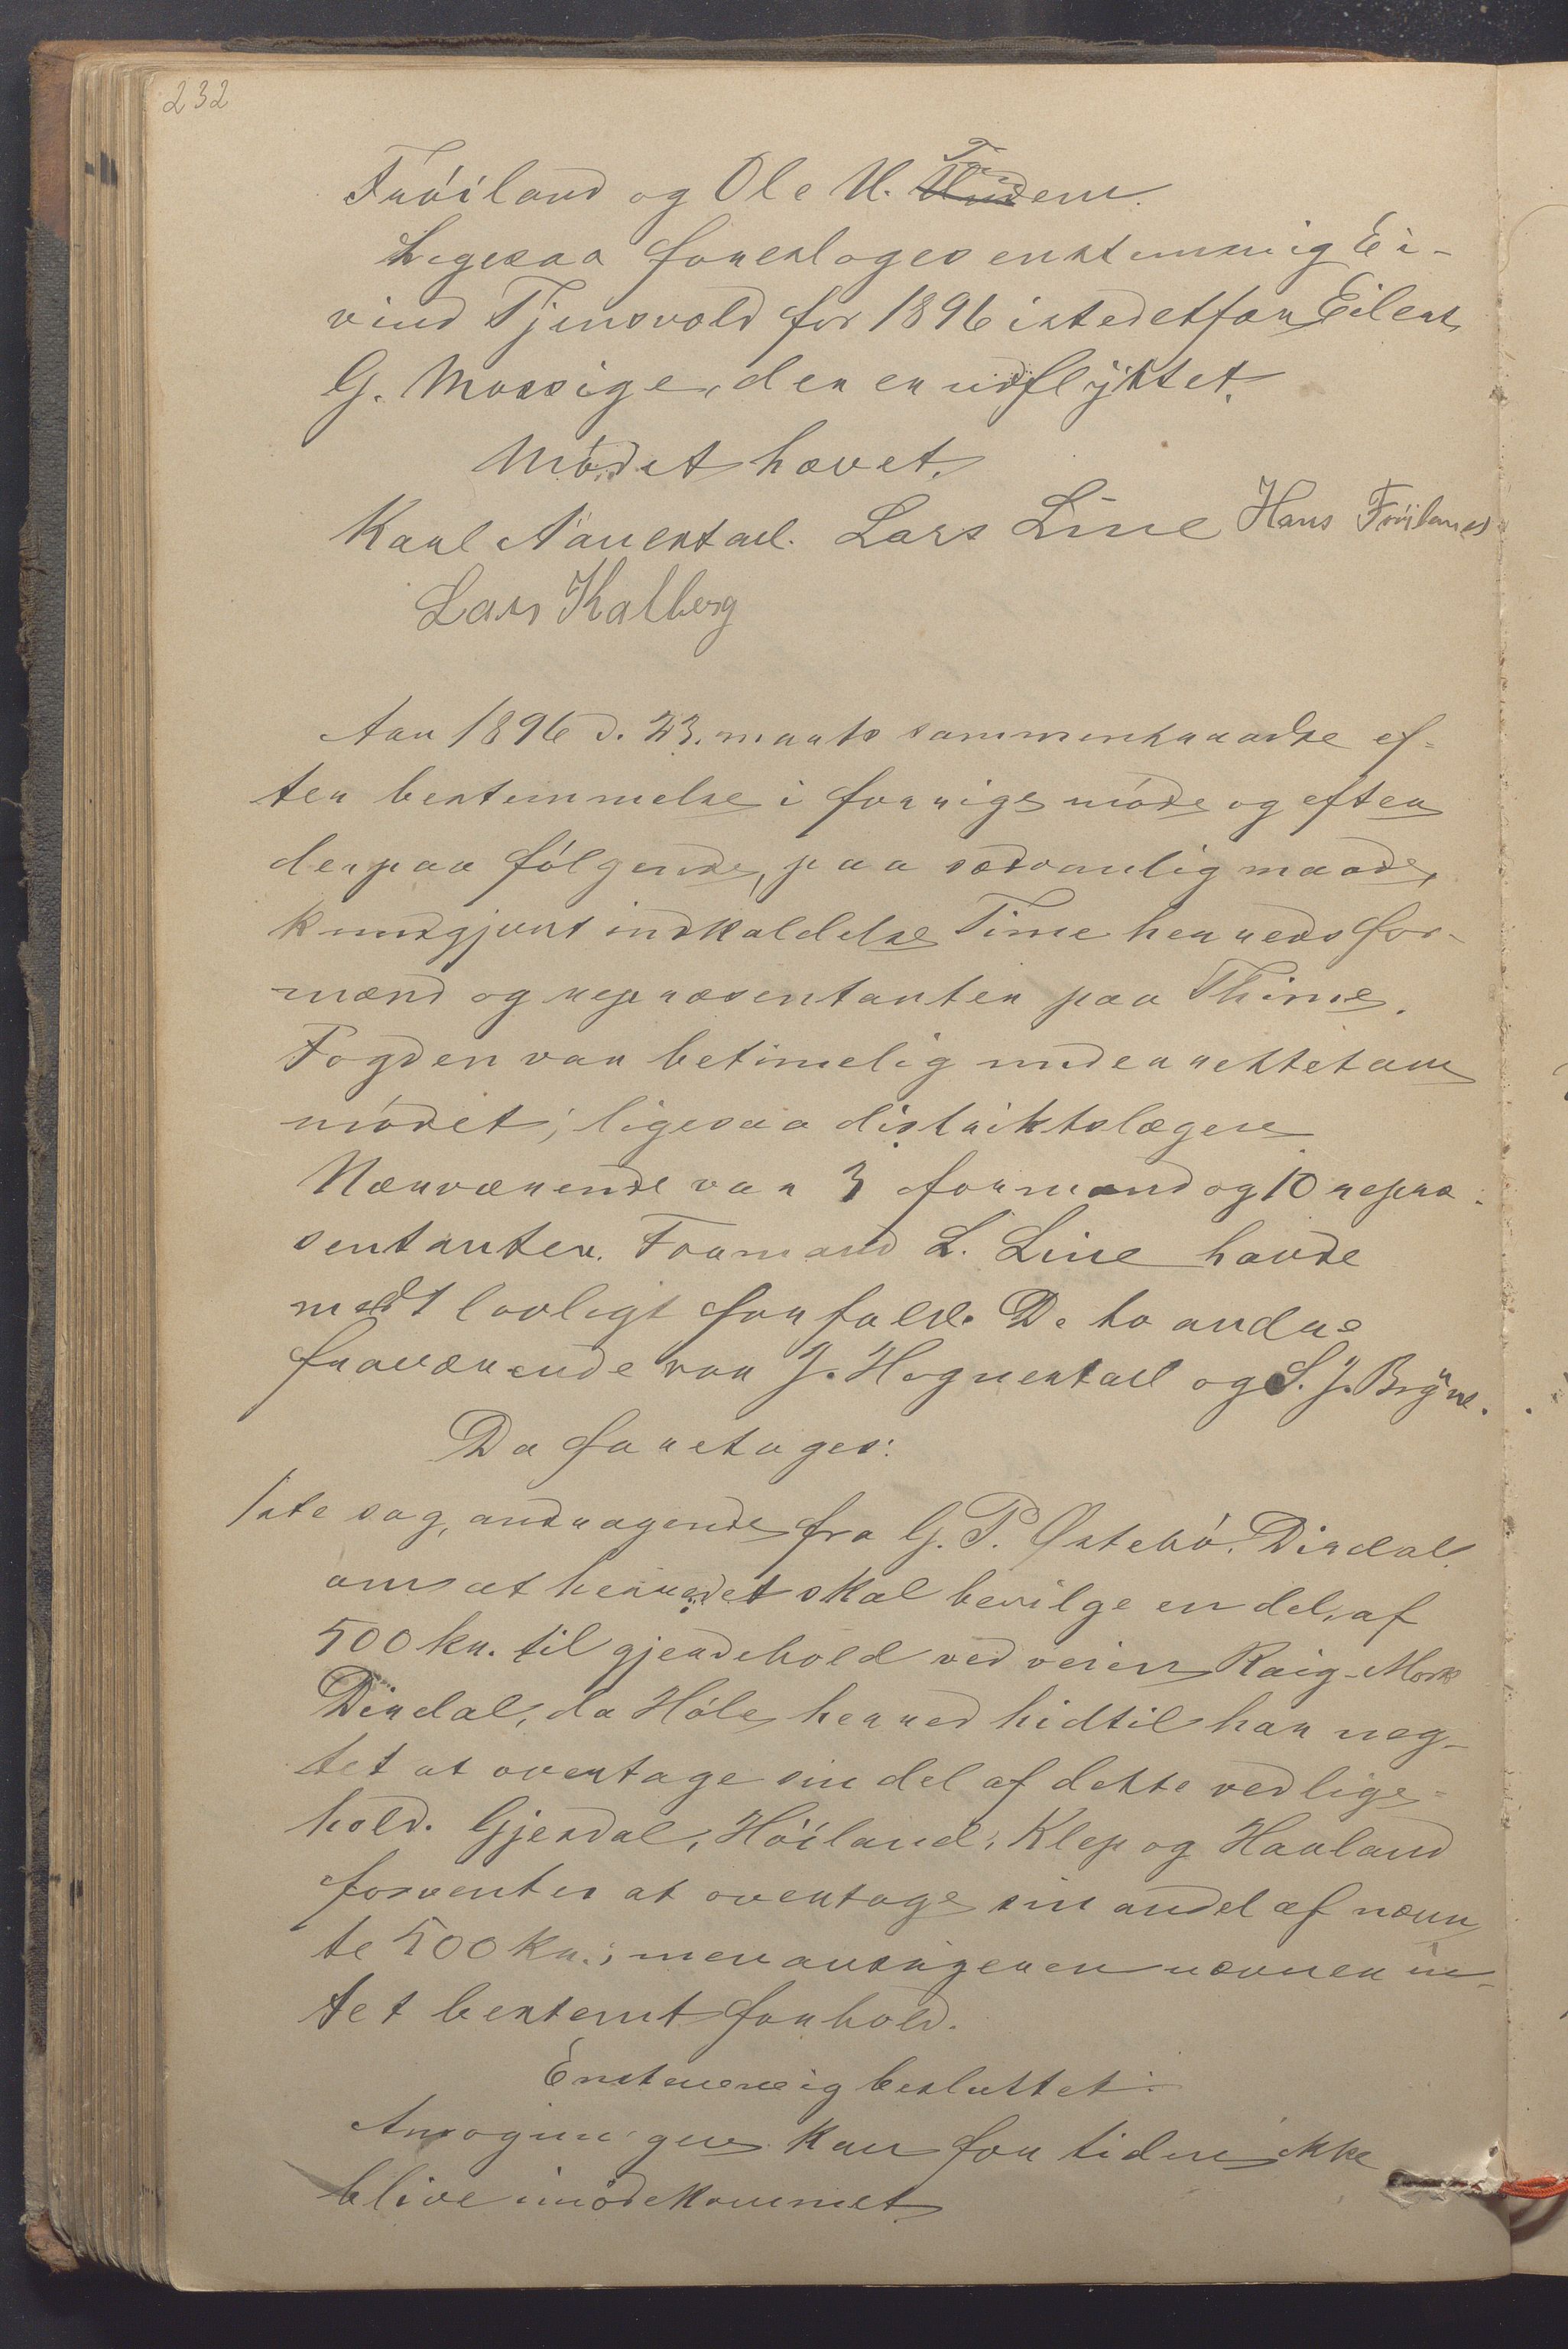 232
Fröiland og Ole U. Tun Undem.
Ligesaa foresloges enstemmig Ei-
vind Tjensvold for 1896 istedetfor Eilert
G. Mossige, der er udflyttet.
Mödet hævet.
Karl Næerland. Lars Line Hans Fröiland
Lars Kalberg
Aar 1896 d. 23. marts sammentraadte ef-
ter bestemmelse i forrige möde og efter
derpaa fölgende, paa sedvanlig maade,
kundgjort indkaldelse Time herreds for-
mænd og repræsentanter paa Thime.
Fogden var betimelig underrettet om
mödet; ligesaa distriktslægen
Nærværende var 3 formænd og 10 repræ-
sentanter. Formand L. Line havde
meldt lovligt forfald. De to andre
fraværende var J. Hognestad og S. J. Bryne.
Da foretoges:
1ste sag, andragende fra G. P. Östebö. Dirdal
om at herredet skal bevilge en del af
500 kr. til gjerdehold ved veien Raig-Mork
Dirdal, da Höle herred hidtil har neg-
tet at overtage sin del af dette vedlige-
hold. Gjesdal, Höiland, Klep og Haaland
forventes at overtage sin andel af nævn
te 500 kr.; men ansögeren nævner in-
tet bestemt forhold.
Enstemmig besluttet:
Ansögningen kan for tiden ikke
blive imödekommet